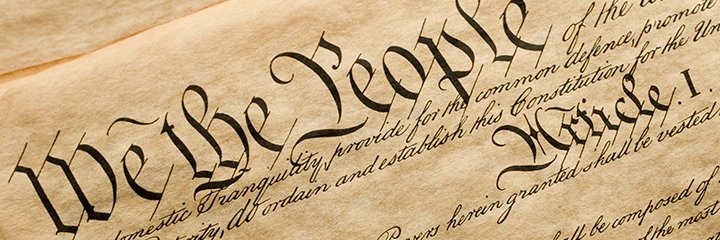 We the People of the
domestic Tranquility, provide for the common defence, promote
do ordain and establish this Constitution for the Un
Article. I.
herein granted shall be vested
ll be composed of
of the most